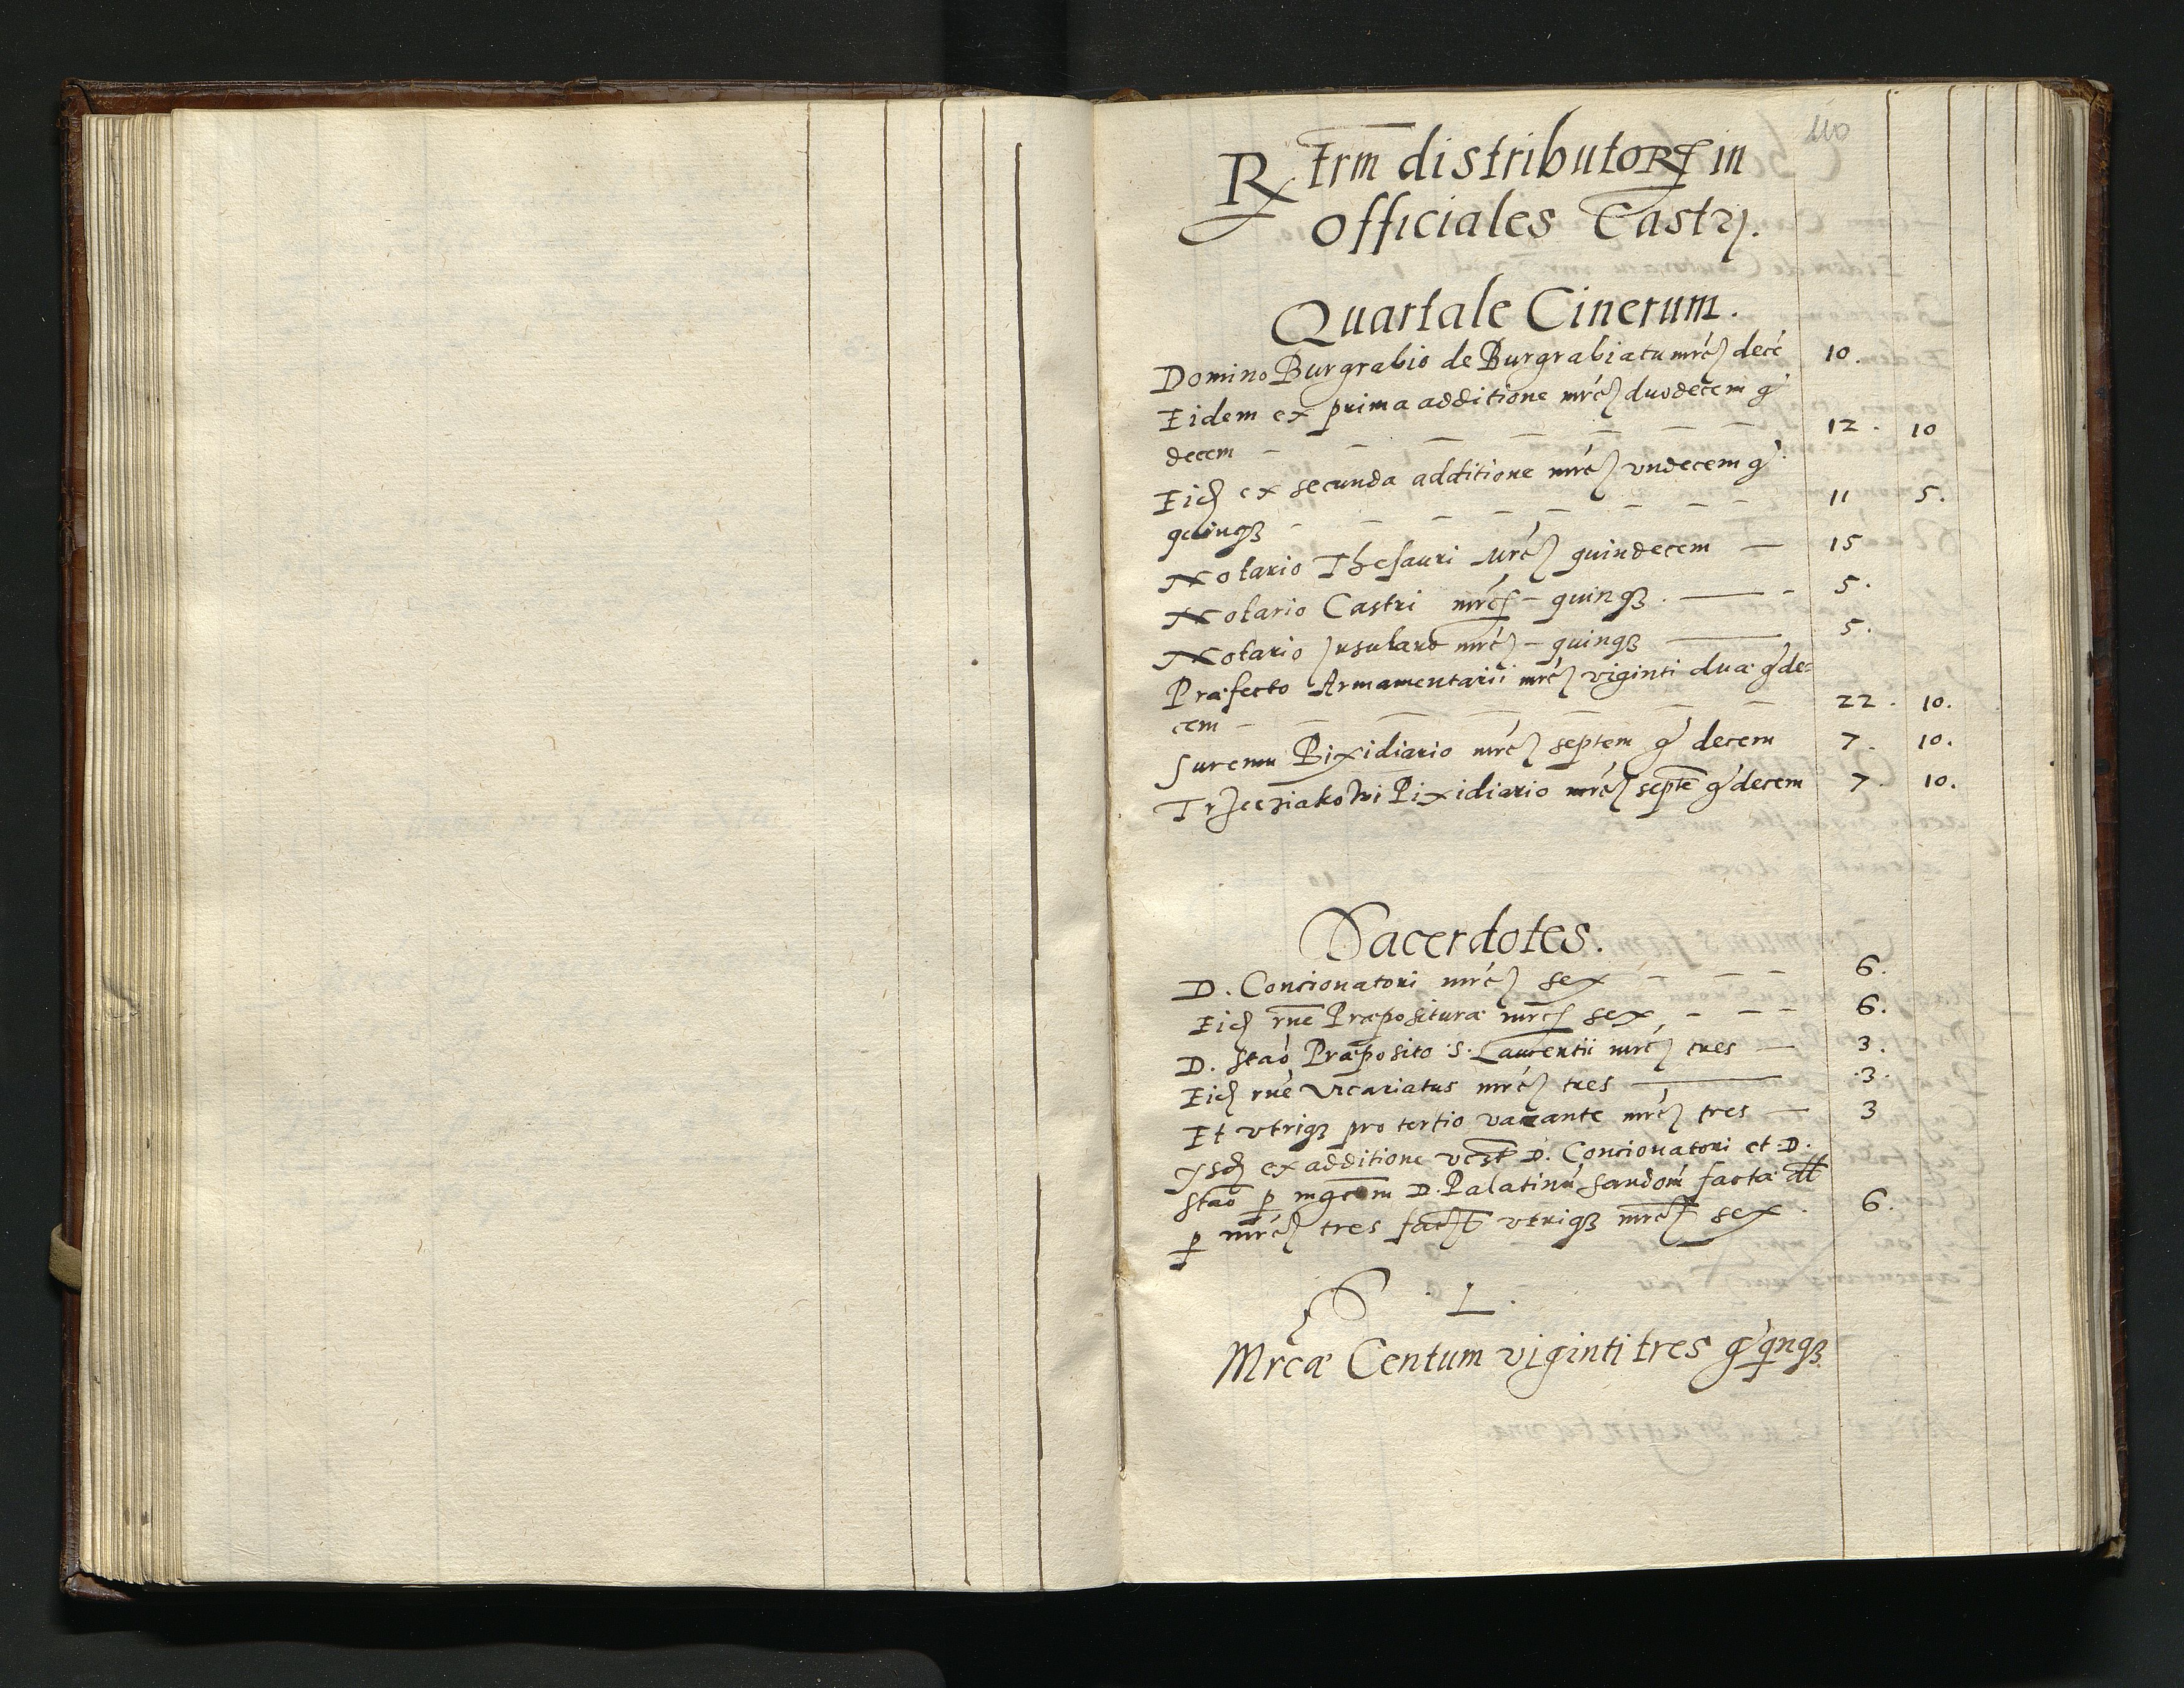 110
Rx trm distributoRꝝ in
officiales Castrj.
Quartale Cinerum.
Domino Burgrabio de Burgrabiatu mrč decē 10.
Eidem ex prima additione mrč duodecem g̃
decem – – – – – – – 12. 10
Eid ex secunda additione mrč vndecem g̃
quinqꝫ – – – – – – – 11 5.
Notario Thesauri Mrč quindecem — 15
Notario Castri mrč – quinqꝫ. — - 5.
Notario mrč – quinqꝫ — 5.
Præfecto Armamentarii mrč viginti duæ g̃ de=
cem – – – – – – 22. 10.
Suremu Bixidiario mrč septem g̃ decem 7. 10.
Pixidiario mrč septē g̃ decem 7. 10.
Sacerdotes.
D. Concionatori mrč sex – – – 6.
Eid rñe Præposituræ mrč sex – – – 6.
D. Stao Præposito S. Laurentii mrč tres — 3.
Eid rñe Vicariatus mrč tres — 3.
Et vtriqꝫ pro tertio vacante mrč tres — 3
ex additione D. Concionatori et D.
Stao p mgcum D. Palatinū Sandom̃ facta
p mrč tres vtriqꝫ mrč sex. 6.
S. L.
Mrcæ Centum viginti tres g̃ qnqꝫ